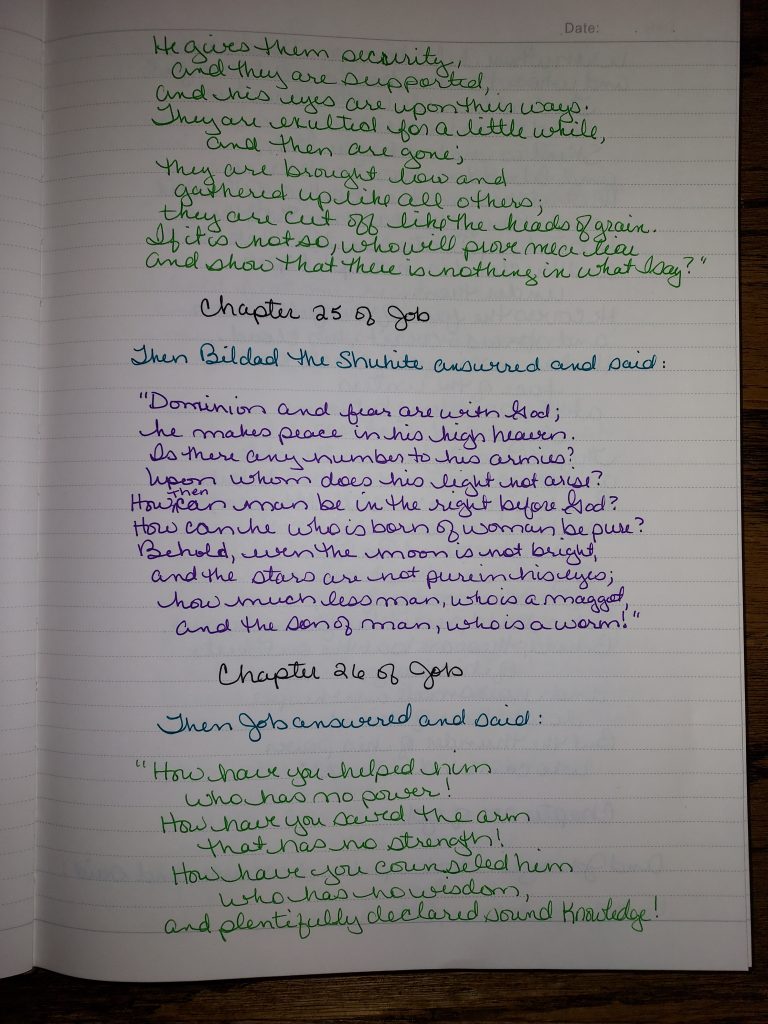 Date:
He gives them security,
and they are supported,
and his eyes are upon their ways.
They are exulted for a little while,
and then are gone;
they are brought low and
gathered up like all others;
they are cut off like the heads of grain.
If it is not so, who will prove me a liar
and show that there is nothing in what I say?"
Chapter 25 of Job
Then Bildad the Shuhite answered and said:
"Dominion and fear are with God;
he makes peace in his high heaven.
Is there any number to his armies?
Upon whom does his light not arise?
How then can man be in the right before God?
How can he who is born of woman be pure?
Behold, even the moon is not bright,
and the stars are not pure in his eyes;
how much less man, who is a maggot,
and the son of man, who is a worm!"
Chapter 26 of Job
Then Job answered and said:
"How have you helped him
who has no power!
How have you saved the arm
that has no strength!
How have you counseled him
who has no wisdom,
and plentifully declared sound knowledge!